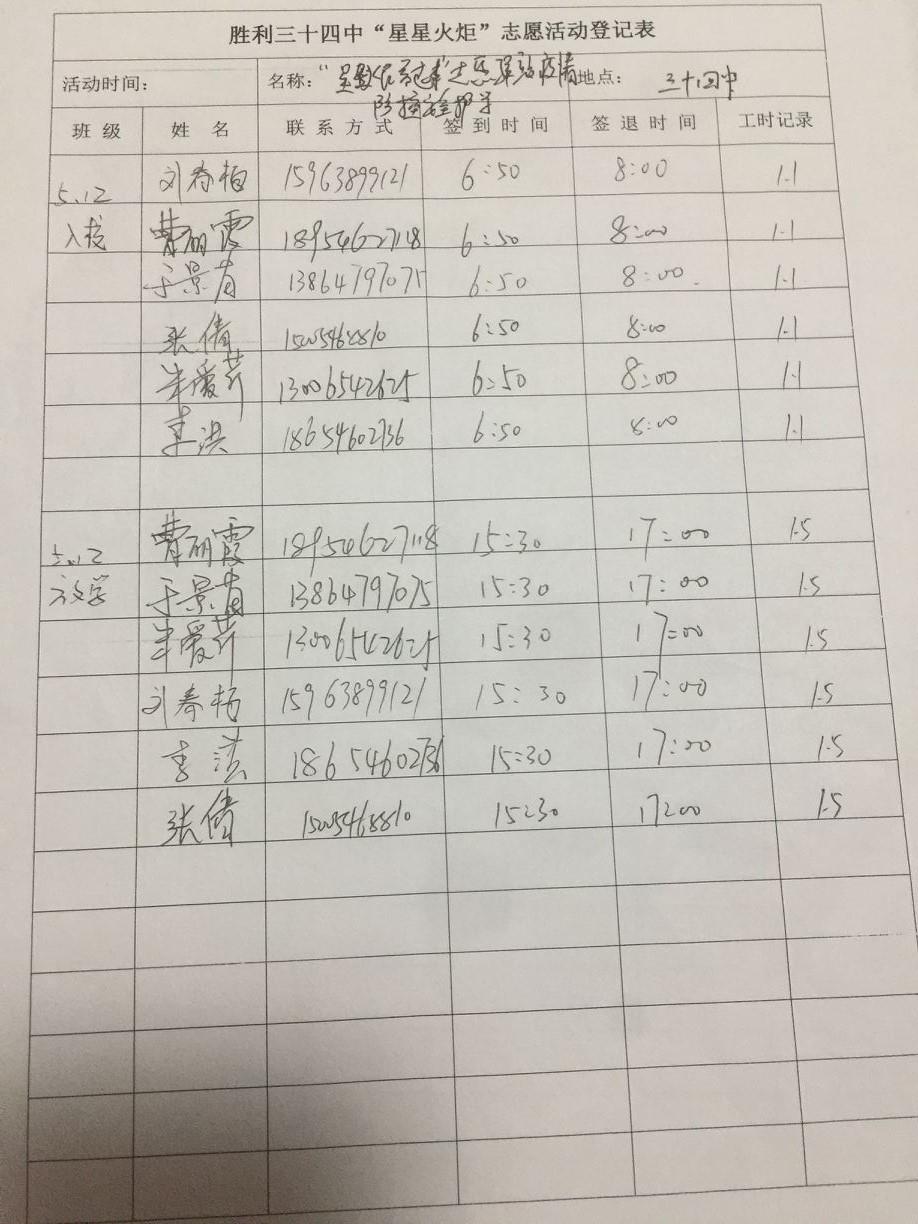 胜利三十四中“星星火炬”志愿活动登记表
活动时间： 名称： 疫情 地点： 三十四中
防控 护学
班 级 姓 名 联 系 方 式 签 到 时 间 签 退 时 间 工时记录
5.12 刘春柏 15963899121 6:50 8:00 1.1
入校 曹丽霞 18954627118 6:50 8:00 1.1
于景苗 13864797075 6:50 8:00 1.1
张倩 6:50 8:00 1.1
朱爱芹 13006542625 6:50 8:00 1.1
李洪 18654602736 6:50 8:00 1.1
5.12 曹丽霞 18954627118 15:30 17:00 1.5
放学 于景苗 13864797075 15:30 17:00 1.5
朱爱芹 13006542625 15:30 17:00 1.5
刘春柏 15963899121 15:30 17:00 1.5
李洪 18654602736 15:30 17:00 1.5
张倩 15:30 17:00 1.5